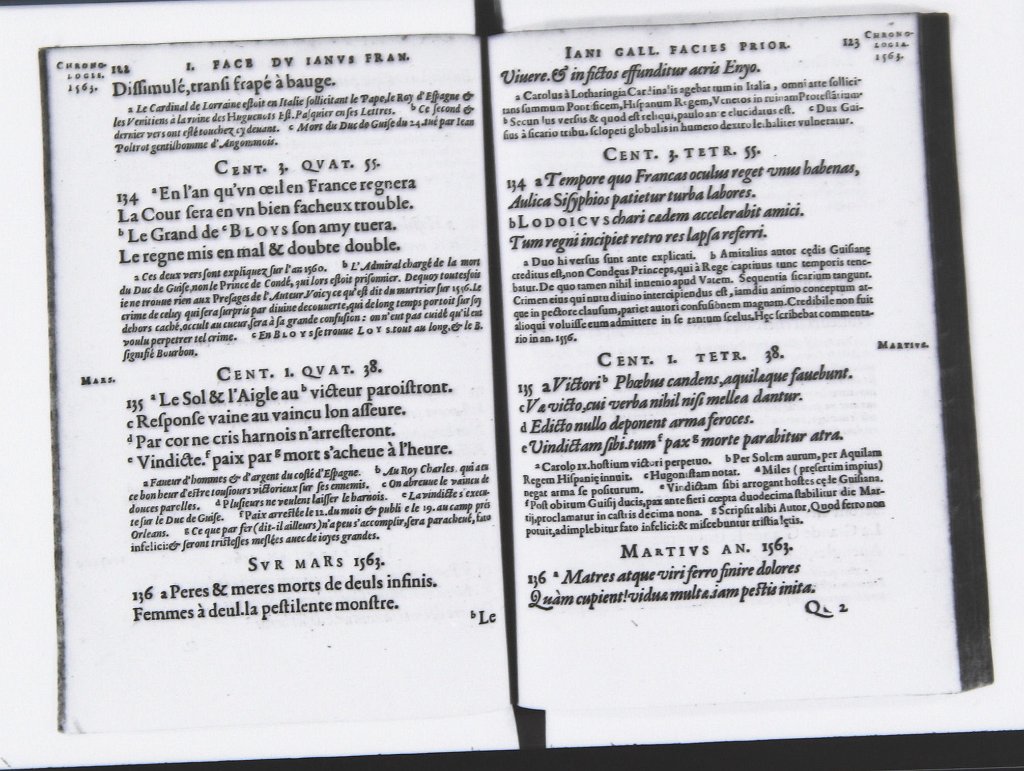 CHRONO-
LOGIE.
1563.
122
I. FACE DV IANVS FRAN.
Dissimulé, transi frapé à bauge.
a Le Cardinal de Lorraine estoit en Italie sollicitant le Pape, le Roy d'Espagne &
les Venitiens à la ruine des Huguenots Est. Pasquier en ses Lettres. b Ce second &
dernier vers ont esté touchez cy deuant. c Mors du Duc de Guise du 24. tué par Iean
Poltrot gentilhomme d'Angoumois.
CENT. 3. QVAT. 55.
134 a En l'an qu'vn œil en France regnera
La Cour sera en vn bien facheux trouble.
b Le Grand de c BLOYS son amy tuera.
Le regne mis en mal & doubte double.
a Ces deux vers sont expliquez sur l'an 1560. b L'Admiral chargé de la mort
du Duc de Guise, non le Prince de Condé, qui lors estoit prisonnier. Dequoy toutesfois
ie ne trouue rien aux Presages de l'Auteur. Voicy ce qu'est dit du murtrier sur 1556. Le
crime de celuy qui sera surpris par diuine decouuerte, qui de long temps portoit sur soy
dehors caché, occult au cueur, sera à sa grande confusion : on n'eut pas cuidé qu'il eut
voulu perpetrer tel crime. c En BLOYS se trouue LOYS. tout au long, & le B.
signifie Bourbon.
MARS.
CENT. 1. QVAT. 38.
135 a Le Sol & l'Aigle au b victeur paroistront.
c Response vaine au vaincu lon asseure.
d Par cor ne cris harnois n'arresteront.
e Vindicte. f paix par g mort s'acheue à l'heure.
a Faueur d'hommes & d'argent du costé d'Espagne. b Au Roy Charles. qui aeu
ce bon heur d'estre tousiours victorieux sur ses ennemis. c On abreuue le vaincu de
douces parolles. d Plusieurs ne veulent laisser le harnois. e La vindicte s execu-
te sur le Duc de Guise. f Paix arrestée le 12. du mois & publiée le 19. au camp prés
Orleans. g Ce que par fer (dit-il ailleurs) n'a peu s'accomplir, sera paracheué, fato
infelici: & seront tristesses meslées auec de ioyes grandes.
SVR MARS 1563.
136 a Peres & meres morts de deuls infinis.
Femmes à deul. la pestilente monstre.
b Le
IANI GALL. FACIES PRIOR.
123
CHRONO-
LOGIA.
1563.
Viuere. & in fictos effunditur acris Enyo.
a Carolus à Lotharingia Cardinalis agebat tum in Italia, omni arte sollici-
tans summum Pontificem, Hispanum Regem, Venetos in ruinam Protestantium.
b Secundus versus & quod est reliqui, paulo ante elucidatus est. c Dux Gui-
sius à sicario tribus sclopeti globulis in humero dextro lethaliter vulneratur.
CENT. 3. TETR. 55.
134 a Tempore quo Francas oculus reget vnus habenas,
Aulica Sisyphios patietur turba labores.
b LODOICVS chari cadem accelerabit amici.
Tum regni incipiet retro res lapsa referri.
a Duo hi versus sunt ante explicati. b Amitalius autor cędis Guisianę
creditus est, non Condęus Princeps, qui à Rege captiuus tunc temporis tene-
batur. De quo tamen nihil inuenio apud Vatem. Sequentia sicarium tangunt.
Crimen eius qui nutu diuino intercipiendus est, iamdiu animo conceptum at-
que in pectore clausum, pariet autori confusionem magnam. Credibile non fuit
alioqui voluisse eum admittere in se tantum scelus. Hęc scribebat commenta-
rio in an. 1556.
MARTIVS.
CENT. 1. TETR. 38.
135 a Victori b Phœbus candens, aquilæque fauebunt.
c Væ victo, cui verba nihil nisi mellea dantur.
d Edicto nullo deponent arma feroces.
e Vindictam sibi. tum f pax g morte parabitur atra.
a Carolo IX. hostium victori perpetuo. b Per Solem aurum, per Aquilam
Regem Hispanię innuit. c Hugonistam notat. d Miles (pręsertim impius)
negat arma se positurum. e Vindictam sibi arrogant hostes cęde Guisiana.
f Post obitum Guisij ducis, pax ante fieri cœpta duodecima stabilitur die Mar-
tij, proclamatur in castris decima nona. g Scripsit alibi Autor, Quod ferro non
potuit, adimplebitur fato infelici: & miscebuntur tristia lętis.
MARTIVS AN. 1563.
136 a Matres atque viri ferro finire dolores
Quàm cupient! viduæ multæ. iam pestis inita.
Q. 2